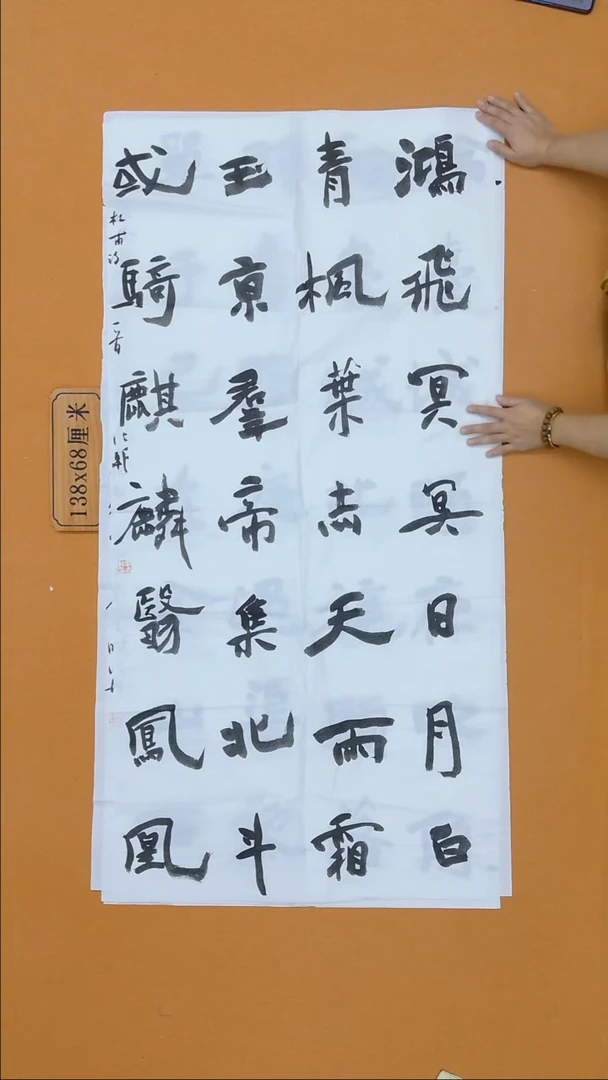 鴻飛冥冥日月白
青楓葉赤天雨霜
玉亰羣帝集北斗
或騎麒麟翳鳳凰
杜甫詩一首
138x68厘米